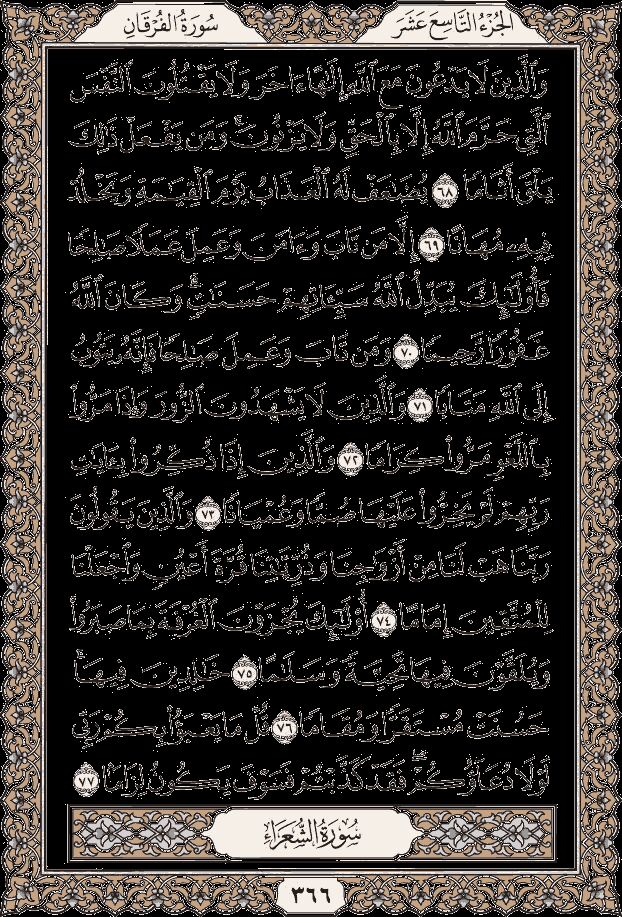 سُورَةُ الفُرْقَانِ
الجُزْءُ التَّاسِعَ عَشَرَ
وَٱلَّذِينَ لَا يَدْعُونَ مَعَ ٱللَّهِ إِلَٰهًا ءَاخَرَ وَلَا يَقْتُلُونَ ٱلنَّفْسَ
ٱلَّتِي حَرَّمَ ٱللَّهُ إِلَّا بِٱلْحَقِّ وَلَا يَزْنُونَ ۚ وَمَن يَفْعَلْ ذَٰلِكَ
يَلْقَ أَثَامًا ٦٨ يُضَٰعَفْ لَهُ ٱلْعَذَابُ يَوْمَ ٱلْقِيَٰمَةِ وَيَخْلُدْ
فِيهِۦ مُهَانًا ٦٩ إِلَّا مَن تَابَ وَءَامَنَ وَعَمِلَ عَمَلًا صَٰلِحًا
فَأُو۟لَٰٓئِكَ يُبَدِّلُ ٱللَّهُ سَيِّـَٔاتِهِمْ حَسَنَٰتٍ ۗ وَكَانَ ٱللَّهُ
غَفُورًا رَّحِيمًا ٧٠ وَمَن تَابَ وَعَمِلَ صَٰلِحًا فَإِنَّهُۥ يَتُوبُ
إِلَى ٱللَّهِ مَتَابًا ٧١ وَٱلَّذِينَ لَا يَشْهَدُونَ ٱلزُّورَ وَإِذَا مَرُّوا۟
بِٱللَّغْوِ مَرُّوا۟ كِرَامًا ٧٢ وَٱلَّذِينَ إِذَا ذُكِّرُوا۟ بِـَٔايَٰتِ
رَبِّهِمْ لَمْ يَخِرُّوا۟ عَلَيْهَا صُمًّا وَعُمْيَانًا ٧٣ وَٱلَّذِينَ يَقُولُونَ
رَبَّنَا هَبْ لَنَا مِنْ أَزْوَٰجِنَا وَذُرِّيَّٰتِنَا قُرَّةَ أَعْيُنٍ وَٱجْعَلْنَا
لِلْمُتَّقِينَ إِمَامًا ٧٤ أُو۟لَٰٓئِكَ يُجْزَوْنَ ٱلْغُرْفَةَ بِمَا صَبَرُوا۟
وَيُلَقَّوْنَ فِيهَا تَحِيَّةً وَسَلَٰمًا ٧٥ خَٰلِدِينَ فِيهَا ۚ
حَسُنَتْ مُسْتَقَرًّا وَمُقَامًا ٧٦ قُلْ مَا يَعْبَؤُا۟ بِكُمْ رَبِّي
لَوْلَا دُعَآؤُكُمْ ۖ فَقَدْ كَذَّبْتُمْ فَسَوْفَ يَكُونُ لِزَامًا ٧٧
سُورَةُ الشُّعَرَاءِ
٣٦٦